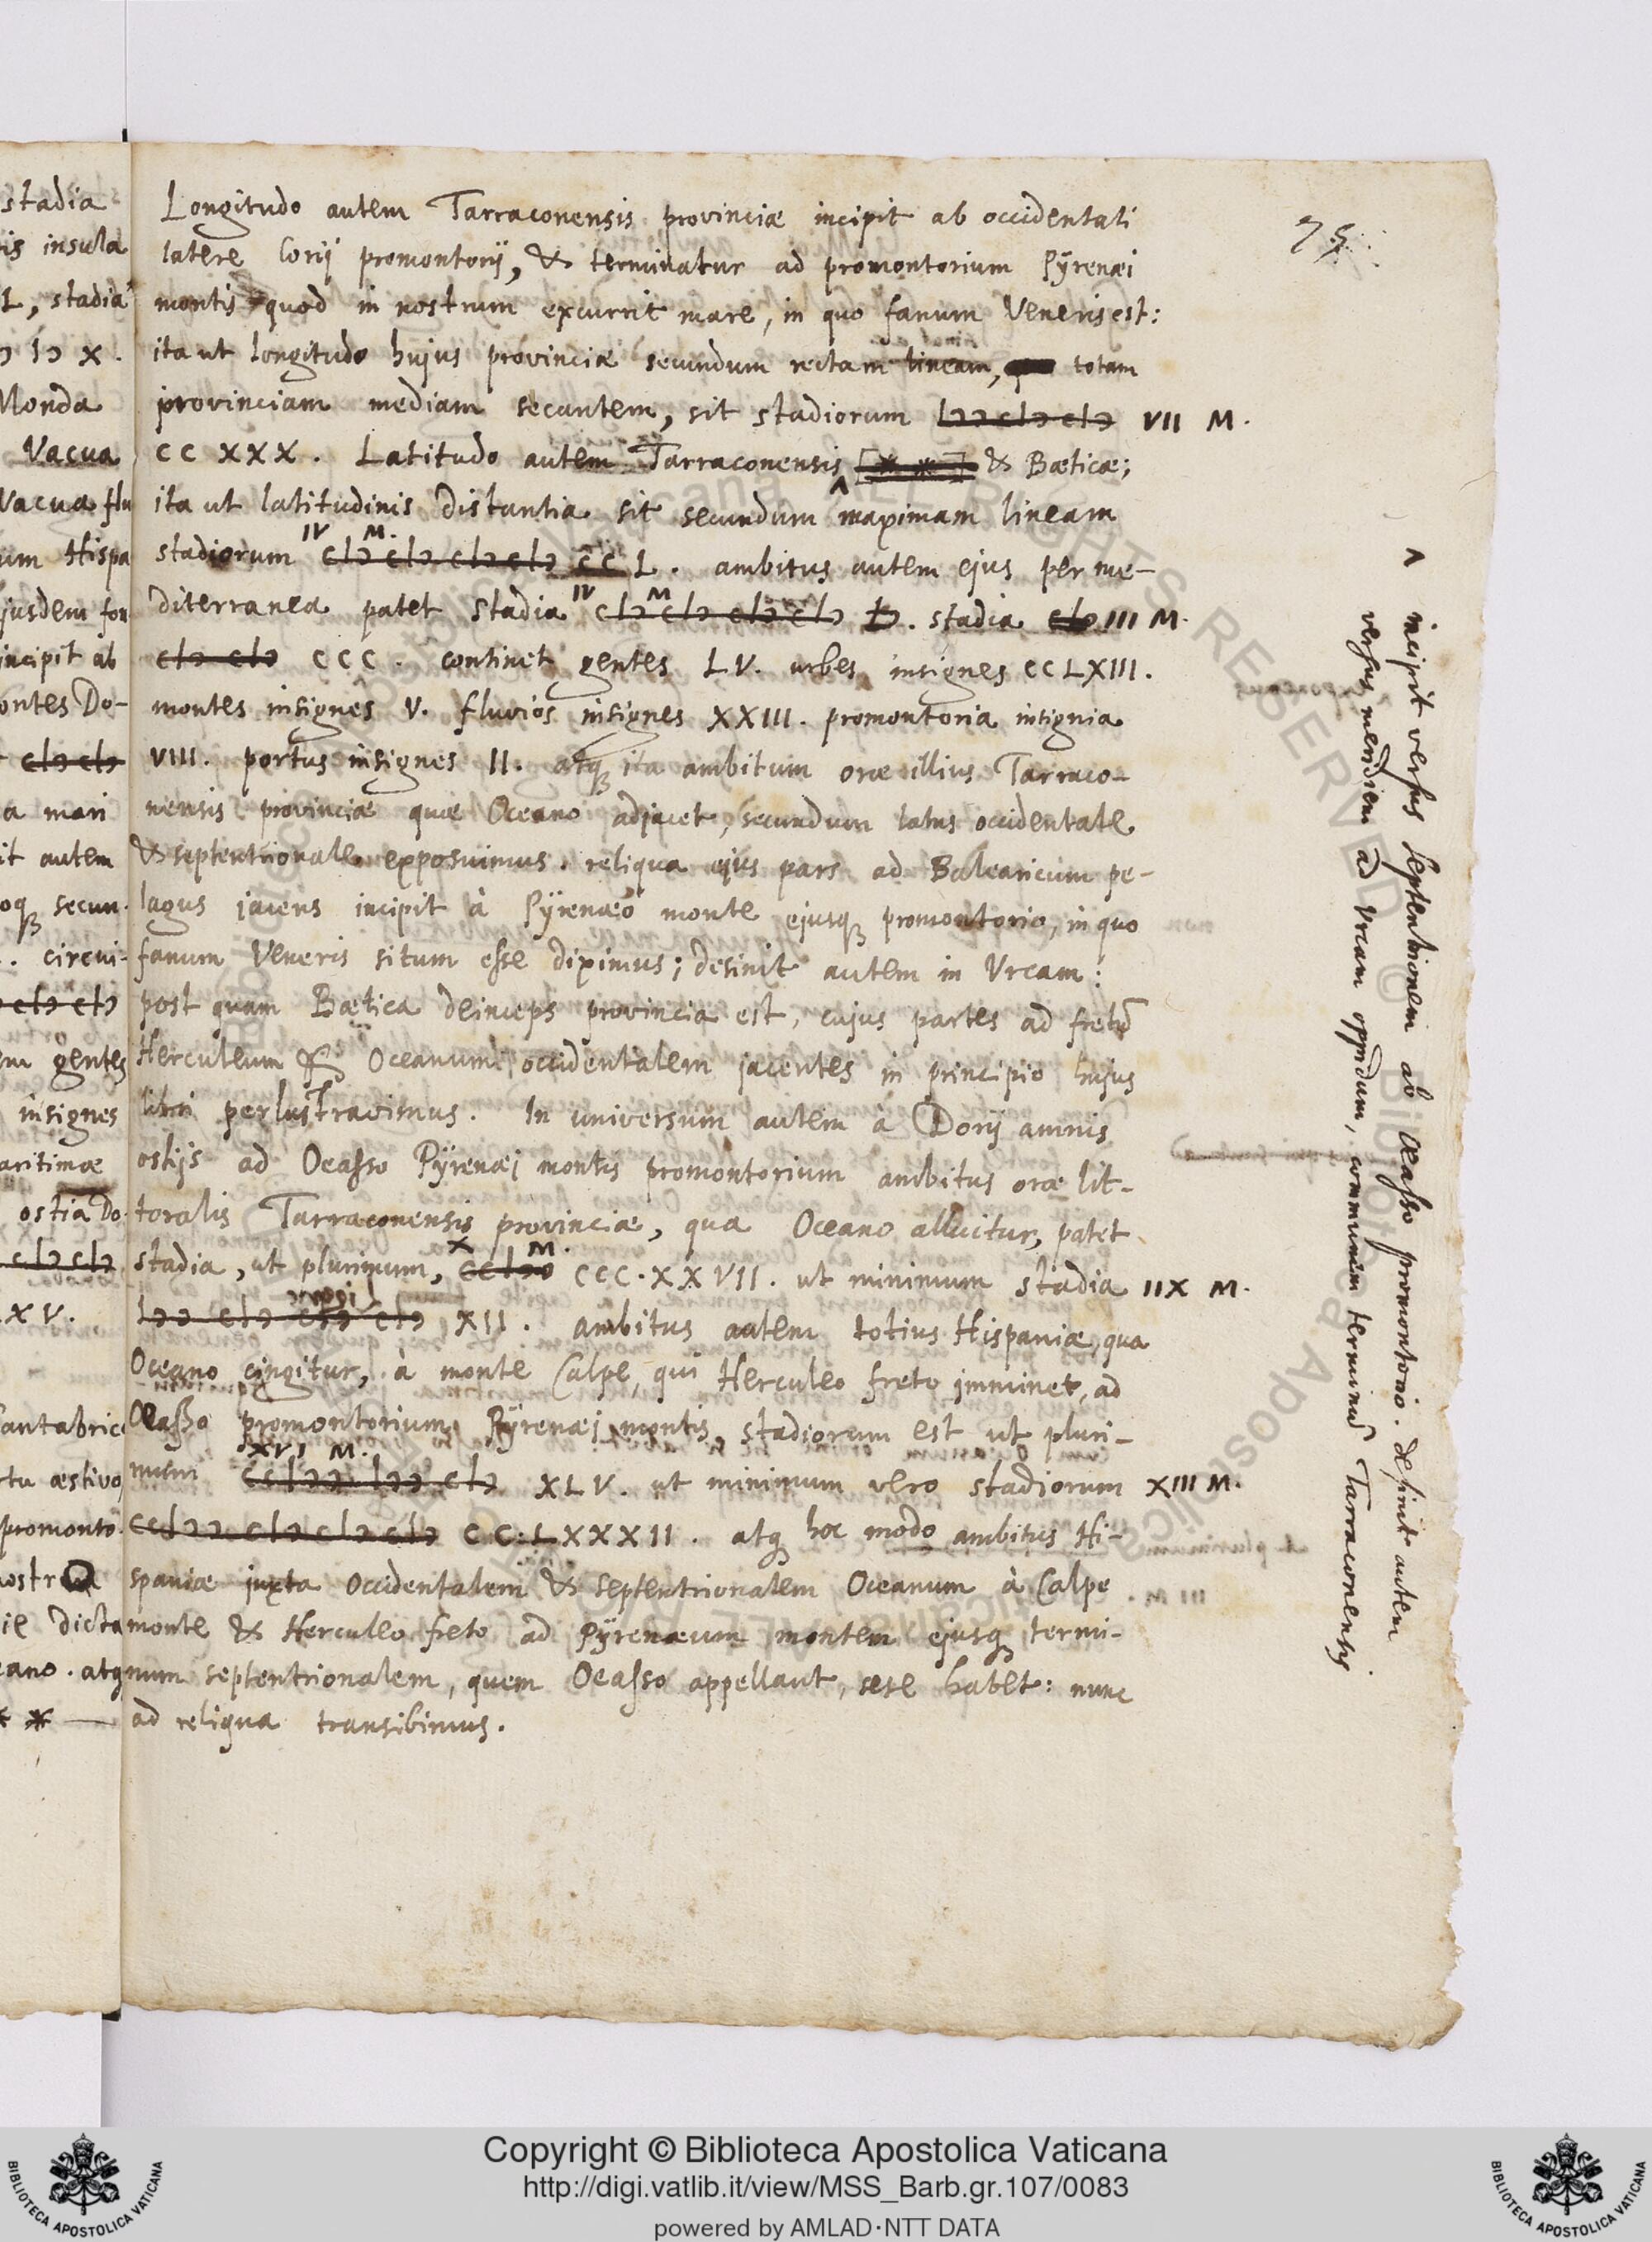 75
Longitudo autem Tarraconensis provinciæ incipit ab occidentali
latere Corij promontorij, & terminatur ad promontorium Pÿrenæi
montis quod in nostrum excurrit mare, in quo fanum Veneris est:
ita ut longitudo hujus provinciæ secundum rectam lineam, totam
provinciam mediam secantem, sit stadiorum Iↄↄ cIↄ cIↄ VII M.
CC XXX. Latitudo autem Tarraconensis ^ [* *] & Bæticæ;
ita ut latitudinis distantia sit secundum maximam lineam
IV M.
stadiorum cIↄ cIↄ cIↄ cIↄ CC L. ambitus autem ejus per me-
IV M
diterranea patet stadia cIↄ cIↄ cIↄ cIↄ Iↄ. stadia cIↄ III M.
cIↄ cIↄ CCC. continet gentes LV. urbes insignes CCLXIII.
montes insignes V. fluvios insignes XXIII. promontoria insignia
VIII. portus insignes II. atq; ita ambitum oræ illius Tarraco-
nensis provinciæ quæ Oceano adjacet, secundum latus occidentale
& septentrionale exposuimus. reliqua ejus pars ad Balearicum pe-
lagus jacens incipit à Pÿrenæo monte ejusq; promontorio, in quo
fanum Veneris situm esse diximus; desinit autem in Urcam:
post quam Bætica deinceps provincia est, cujus partes ad fretū
Herculeum & Oceanum occidentalem jacentes in principio hujus
libri perlustravimus. In universum autem à Dorij amnis
ostijs ad Oeasso Pÿrenæi montis promontorium ambitus oræ lit-
toralis Tarraconensis provinciæ, qua Oceano alluitur, patet
X M.
stadia, ut plurimum, ccIↄↄ CCC.XXVII. ut minimum stadia IIX M.
Iↄↄ cIↄ cIↄ cIↄ XII. ambitus autem totius Hispaniæ, qua
Oceano cingitur, à monte Calpe, qui Herculeo freto imminet, ad
Oeasso promontorium Pÿrenæi montis, stadiorum est ut pluri-
XVI M.
mum ccIↄↄ Iↄↄ cIↄ XLV. ut minimum vero stadiorum XIII M.
ccIↄↄ cIↄ cIↄ cIↄ CC.LXXXII. atq; hoc modo ambitus Hi-
spaniæ juxta Occidentalem & Septentrionalem Oceanum à Calpe
monte & Herculeo freto ad Pÿrenæum montem ejusq; termi-
num septentrionalem, quem Oeasso appellant, sese habet: nunc
ad reliqua transibimus.
^ incipit versus septentrionem ab Oeasso promontorio. desinit autem
versus meridiem ad Urcam oppidum, communem terminū Tarraconensis
stadia
insula
L, stadia
Iↄ X.
Monda
Vacua
Vacua flu
um Hispa
jusdem fon
incipit ab
ontes Do-
cIↄ cIↄ
a mari
it autem
oq; secun-
circui-
cIↄ cIↄ
gentes
insignes
aritimæ
ostia Do-
cIↄ cIↄ
XV.
Cantabric
rtu æstivo
promonto-
nostra
ie dicta
eano. atq
* * —
Copyright © Biblioteca Apostolica Vaticana
http://digi.vatlib.it/view/MSS_Barb.gr.107/0083
powered by AMLAD·NTT DATA
BIBLIOTECA APOSTOLICA VATICANA
BIBLIOTECA APOSTOLICA VATICANA